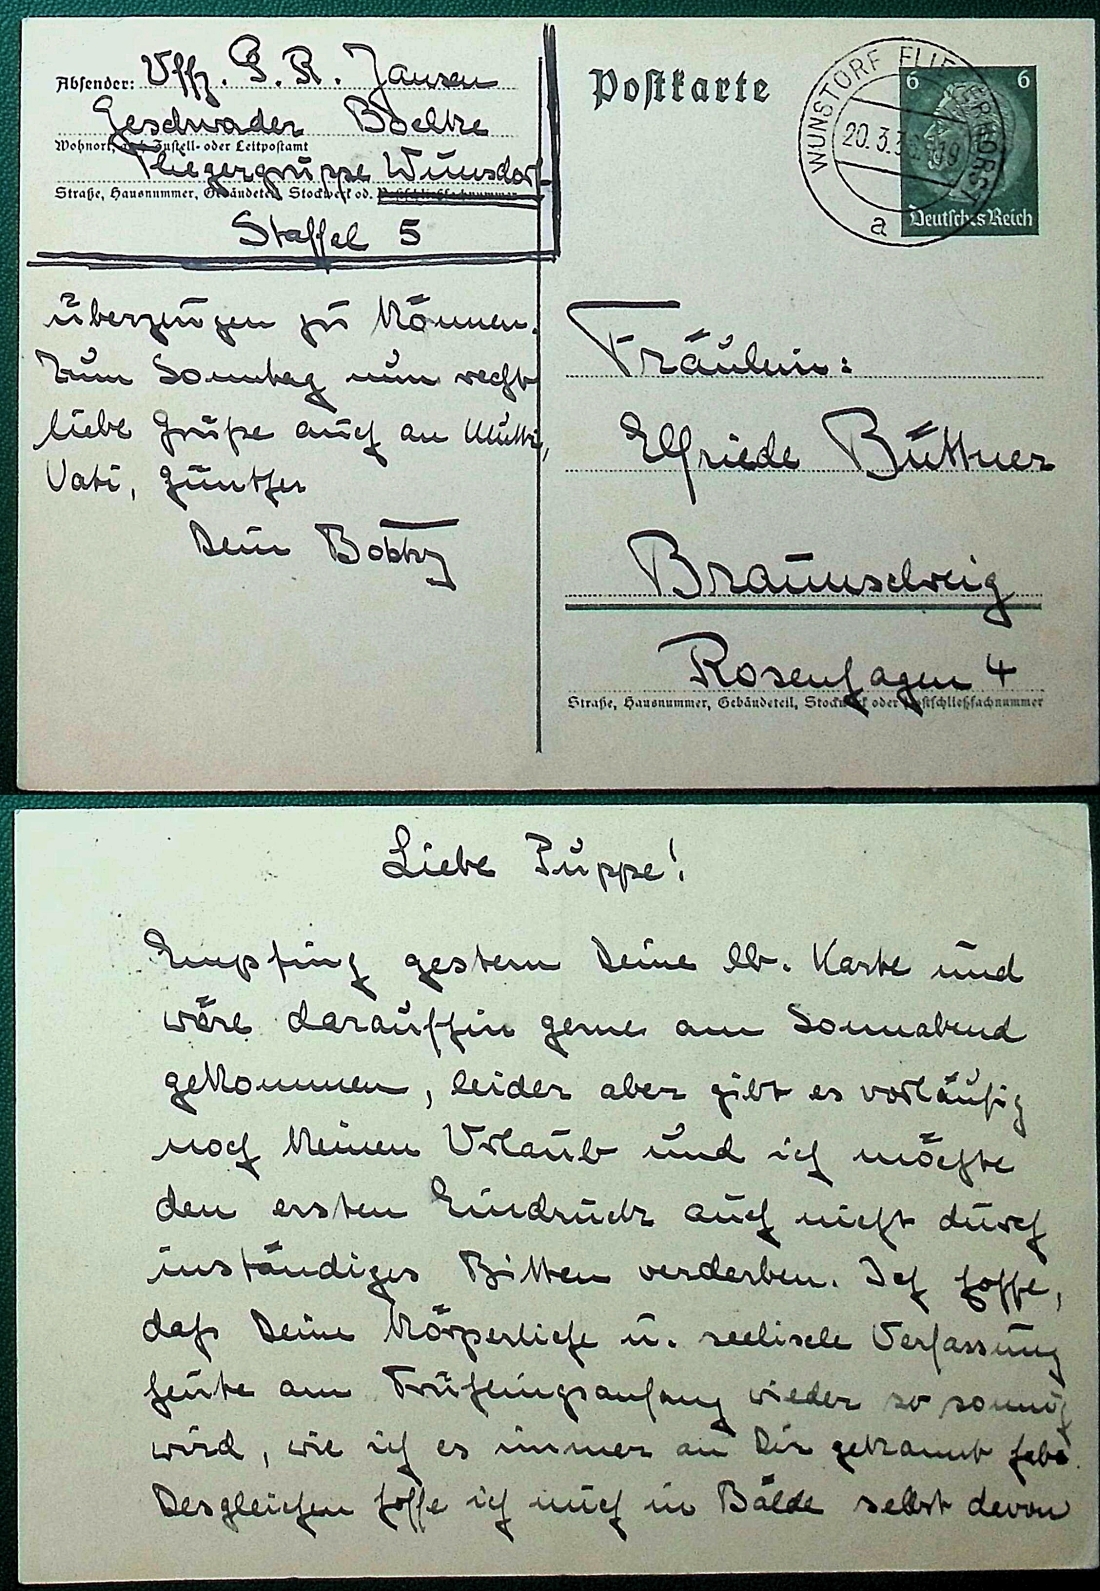 Absender: Uffz. G. R. Jansen
Geschwader Boelke
Wohnort, auch Zustell- oder Leitpostamt
Fliegergruppe Wunsdorf
Straße, Hausnummer, Gebäudeteil, Stockwerk od. Postschließfachnummer
Staffel 5
überzeugen zu können.
Zum Sonntag nun recht
liebe Grüße auch an Mutti,
Vati, Günther
Dein Bobby
Postkarte
WUNSTORF FLIEGERHORST
20.3.3 19
a
6 6
Deutsches Reich
Fräulein:
Elfriede Büttner
Braunschweig
Rosenhagen 4
Straße, Hausnummer, Gebäudeteil, Stockwerk oder Postschließfachnummer
Liebe Puppe!
Empfing gestern Deine lb. Karte und
wäre daraufhin gerne am Sonnabend
gekommen, leider aber gibt es vorläufig
noch keinen Urlaub und ich möchte
den ersten Eindruck auch nicht durch
inständiges Bitten verderben. Ich hoffe,
daß Deine körperliche u. seelische Verfassung
heute am Frühlingsanfang wieder so sonnig
wird, wie ich es immer an Dir gekannt habe.
Desgleichen hoffe ich mich in Bälde selbst davon